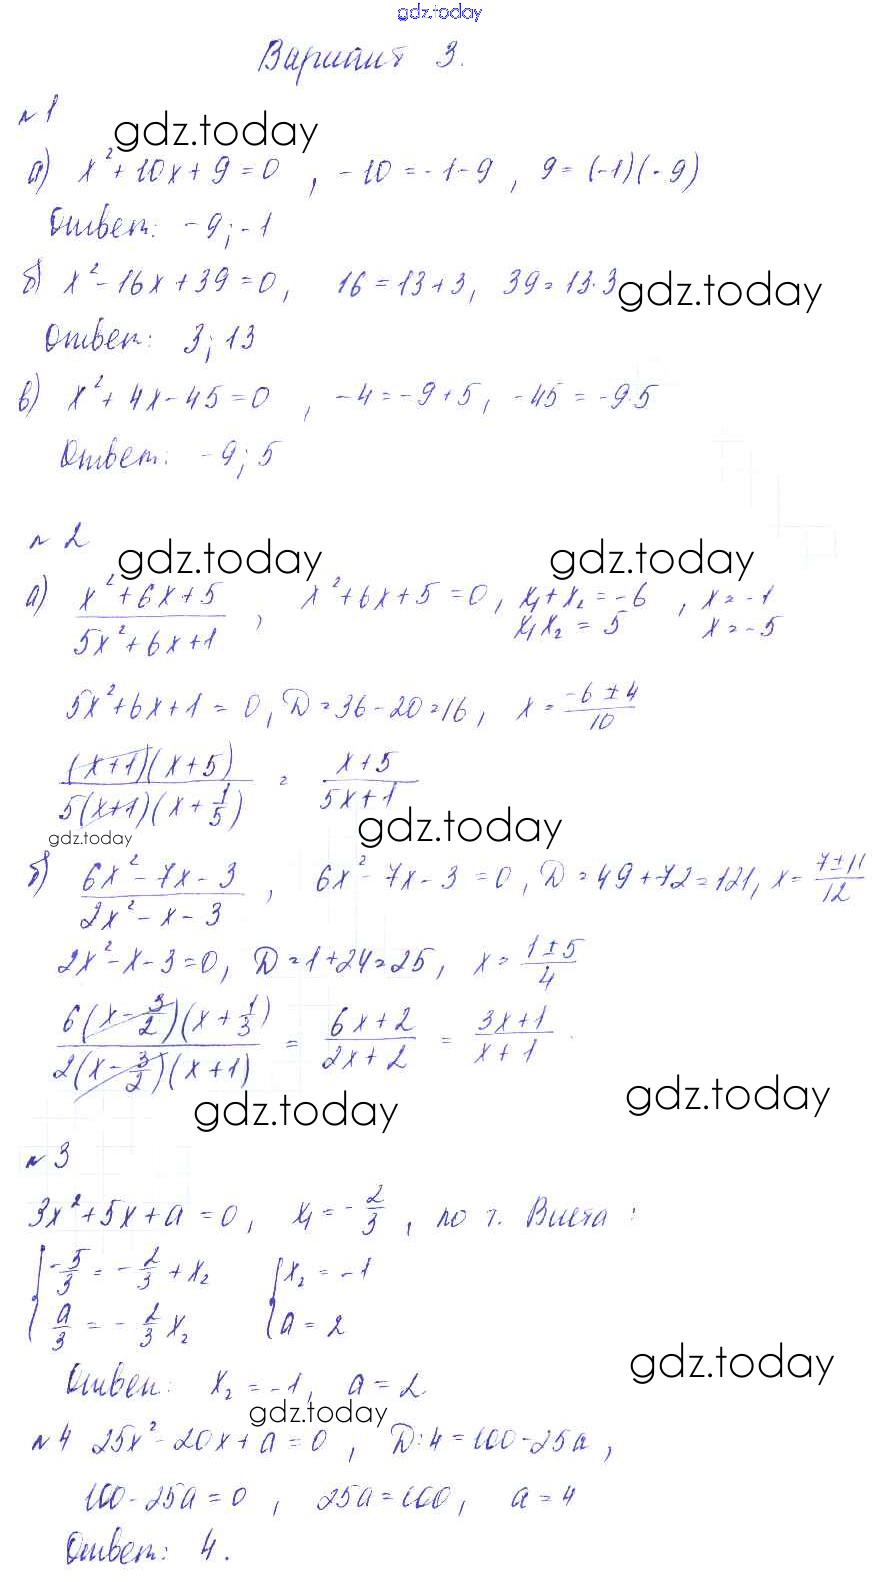 gdz.today
Вариант 3.
№1
gdz.today
а) x² + 10x + 9 = 0 , -10 = -1-9 , 9 = (-1)(-9)
Ответ: -9; -1
б) x² - 16x + 39 = 0, 16 = 13+3, 39 = 13·3
gdz.today
Ответ: 3; 13
в) x² + 4x - 45 = 0 , -4 = -9+5, -45 = -9·5
Ответ: -9; 5
№2
gdz.today gdz.today
а) (x²+6x+5)/(5x²+6x+1) , x²+6x+5 = 0, x₁+x₂ = -6 , x = -1
x₁x₂ = 5 x = -5
5x²+6x+1 = 0, D = 36-20 = 16, x = (-6±4)/10
((x+1)(x+5))/(5(x+1)(x+1/5)) = (x+5)/(5x+1)
gdz.today gdz.today
б) (6x²-7x-3)/(2x²-x-3) , 6x²-7x-3 = 0, D = 49+72 = 121, x = (7±11)/12
2x²-x-3 = 0, D = 1+24 = 25, x = (1±5)/4
(6(x-3/2)(x+1/3))/(2(x-3/2)(x+1)) = (6x+2)/(2x+2) = (3x+1)/(x+1)
gdz.today gdz.today
№3
3x²+5x+a = 0, x₁ = -2/3 , по т. Виета :
{ -5/3 = -2/3 + x₂ { x₂ = -1
{ a/3 = -2/3 x₂ { a = 2
gdz.today
Ответ: x₂ = -1, a = 2
gdz.today
№4 25x²-20x+a = 0 , D:4 = 100-25a ,
100-25a = 0 , 25a = 100, a = 4
Ответ: 4.